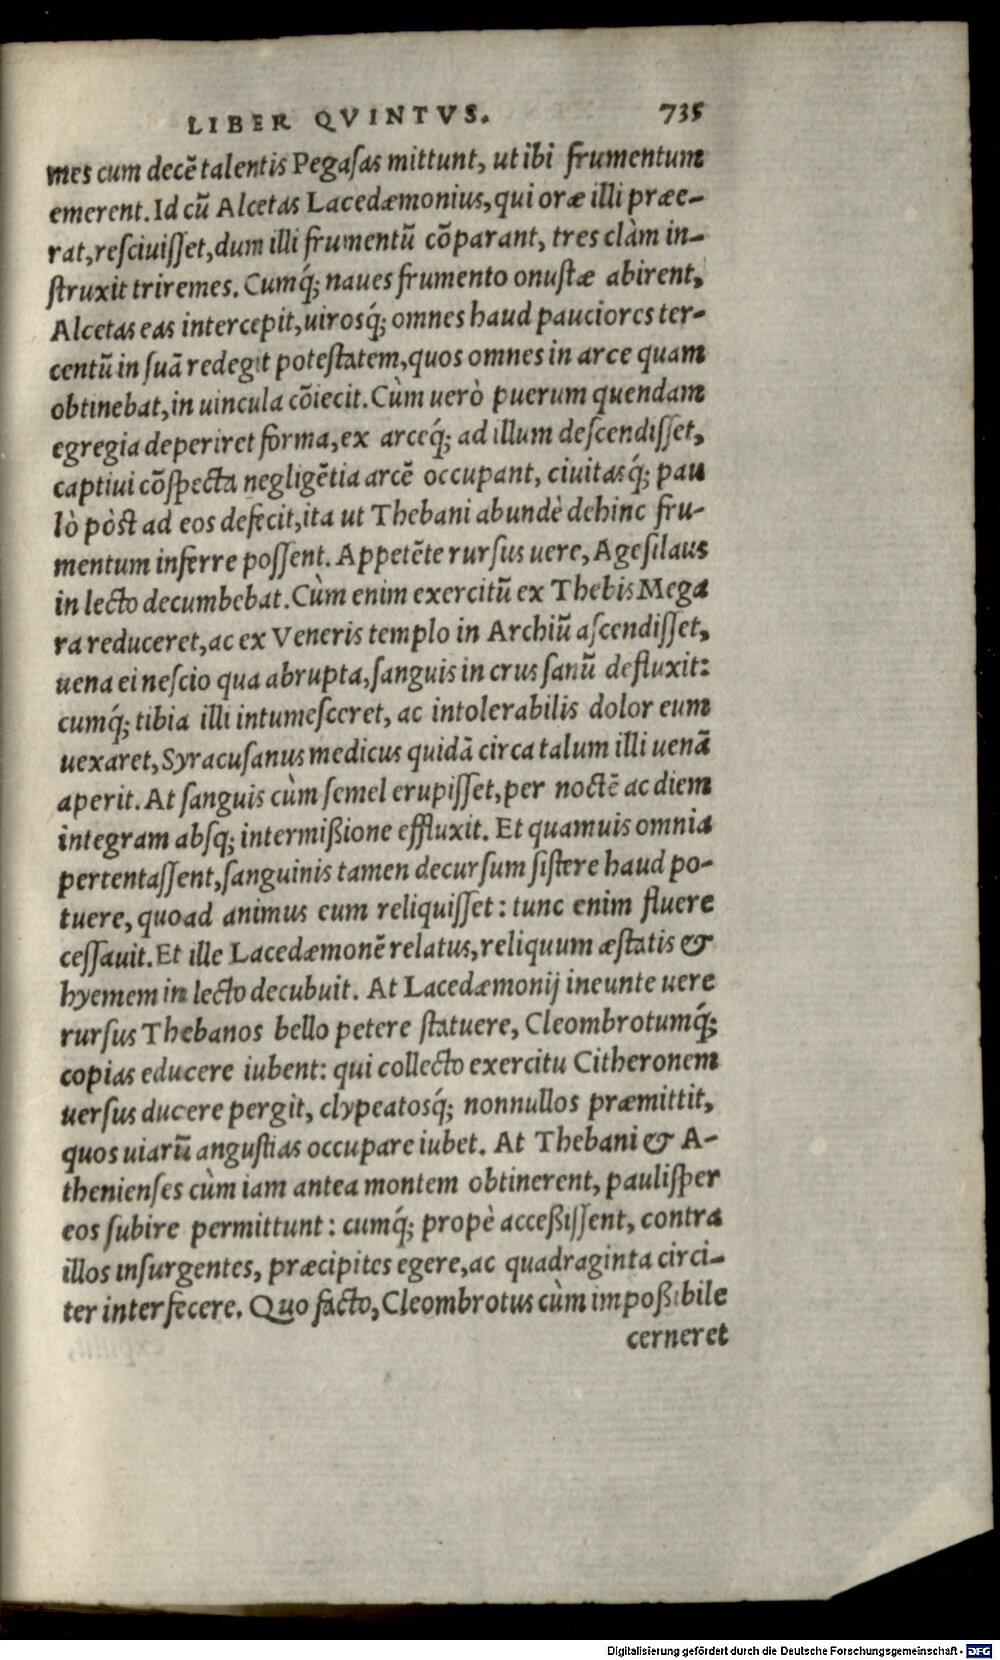 LIBER QVINTVS. 735
mes cum decē talentis Pegaſas mittunt, ut ibi frumentum
emerent. Id cū Alcetas Lacedæmonius, qui oræ illi præe-
rat, reſciuiſſet, dum illi frumentū cōparant, tres clàm in-
ſtruxit triremes. Cumq́; naues frumento onuſtæ abirent,
Alcetas eas intercepit, uirosq́; omnes haud pauciores ter-
centū in ſuā redegit poteſtatem, quos omnes in arce quam
obtinebat, in uincula cōiecit. Cùm uerò puerum quendam
egregia deperiret forma, ex arceq́; ad illum deſcendiſſet,
captiui cōſpecta negligētia arcē occupant, ciuitasq́; pau
lò pòſt ad eos defecit, ita ut Thebani abundè dehinc fru-
mentum inferre poſſent. Appetēte rurſus uere, Ageſilaus
in lecto decumbebat. Cùm enim exercitū ex Thebis Mega
ra reduceret, ac ex Veneris templo in Archiū aſcendiſſet,
uena ei neſcio qua abrupta, ſanguis in crus ſanū defluxit:
cumq́; tibia illi intumeſceret, ac intolerabilis dolor eum
uexaret, Syracuſanus medicus quidā circa talum illi uenā
aperit. At ſanguis cùm ſemel erupiſſet, per noctē ac diem
integram abſq; intermißione effluxit. Et quamuis omnia
pertentaſſent, ſanguinis tamen decurſum ſiſtere haud po-
tuere, quoad animus eum reliquiſſet: tunc enim fluere
ceſſauit. Et ille Lacedæmonē relatus, reliquum æſtatis &
hyemem in lecto decubuit. At Lacedæmonij ineunte uere
rurſus Thebanos bello petere ſtatuere, Cleombrotumq́;
copias educere iubent: qui collecto exercitu Citheronem
uerſus ducere pergit, clypeatosq́; nonnullos præmittit,
quos uiarū anguſtias occupare iubet. At Thebani & A-
thenienſes cùm iam antea montem obtinerent, pauliſper
eos ſubire permittunt: cumq́; propè acceßiſſent, contra
illos inſurgentes, præcipites egere, ac quadraginta circi-
ter interfecere. Quo facto, Cleombrotus cùm impoßibile
cerneret
Digitalisierung gefördert durch die Deutsche Forschungsgemeinschaft - DFG